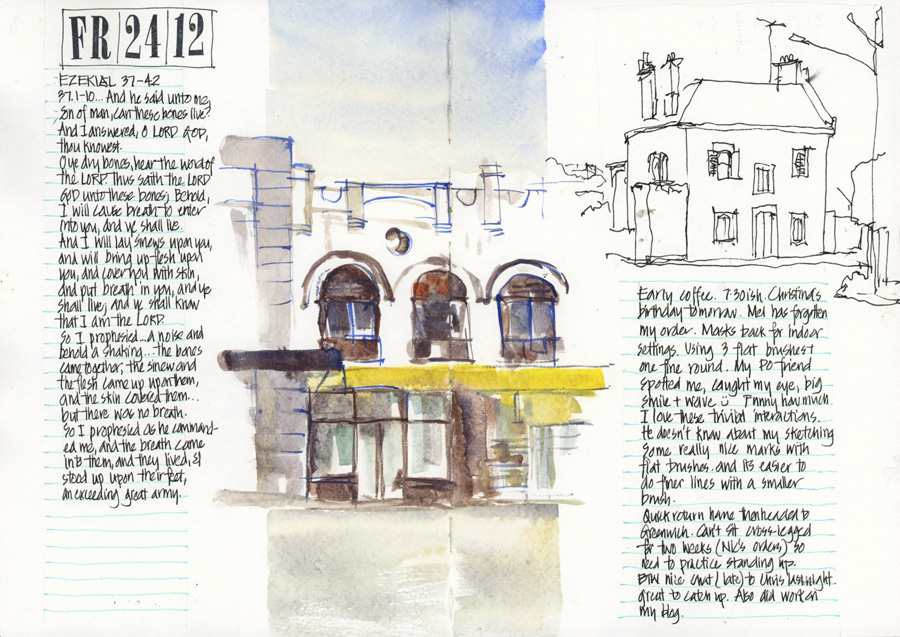 FR 24 12
EZEKIAL 37-42
37.1-10... And he said unto me,
Son of man, can these bones live?
And I answered, O LORD GOD,
thou knowest.
O ye dry bones, hear the word of
the LORD. Thus saith the LORD
GOD unto these bones; Behold,
I will cause breath to enter
into you, and ye shall live.
And I will lay sinews upon you,
and will bring up flesh upon
you, and cover you with skin,
and put breath in you, and ye
shall live; and ye shall know
that I am the LORD.
So I prophesied... a noise and
behold a shaking... the bones
came together, the sinew and
the flesh came up upon them,
and the skin covered them...
but there was no breath.
So I prophesied as he command-
ed me, and the breath came
into them, and they lived, &
stood up upon their feet,
an exceeding great army.
Early coffee. 7:30ish. Christina's
birthday tomorrow. Mel has forgotten
my order. Masks back for indoor
settings. Using 3 flat brushes +
one fine round. My PO friend
spotted me, caught my eye, big
smile + wave ü Funny how much
I love these trivial interactions.
He doesn't know about my sketching
Some really nice marks with
flat brushes. and it's easier to
do finer lines with a smaller
brush.
Quick return home then headed to
Greenwich. Can't sit cross-legged
for two weeks (Nic's orders) so
need to practice standing up.
BTW nice chat (late) to Chris last night.
great to catch up. Also did work on
my blog.